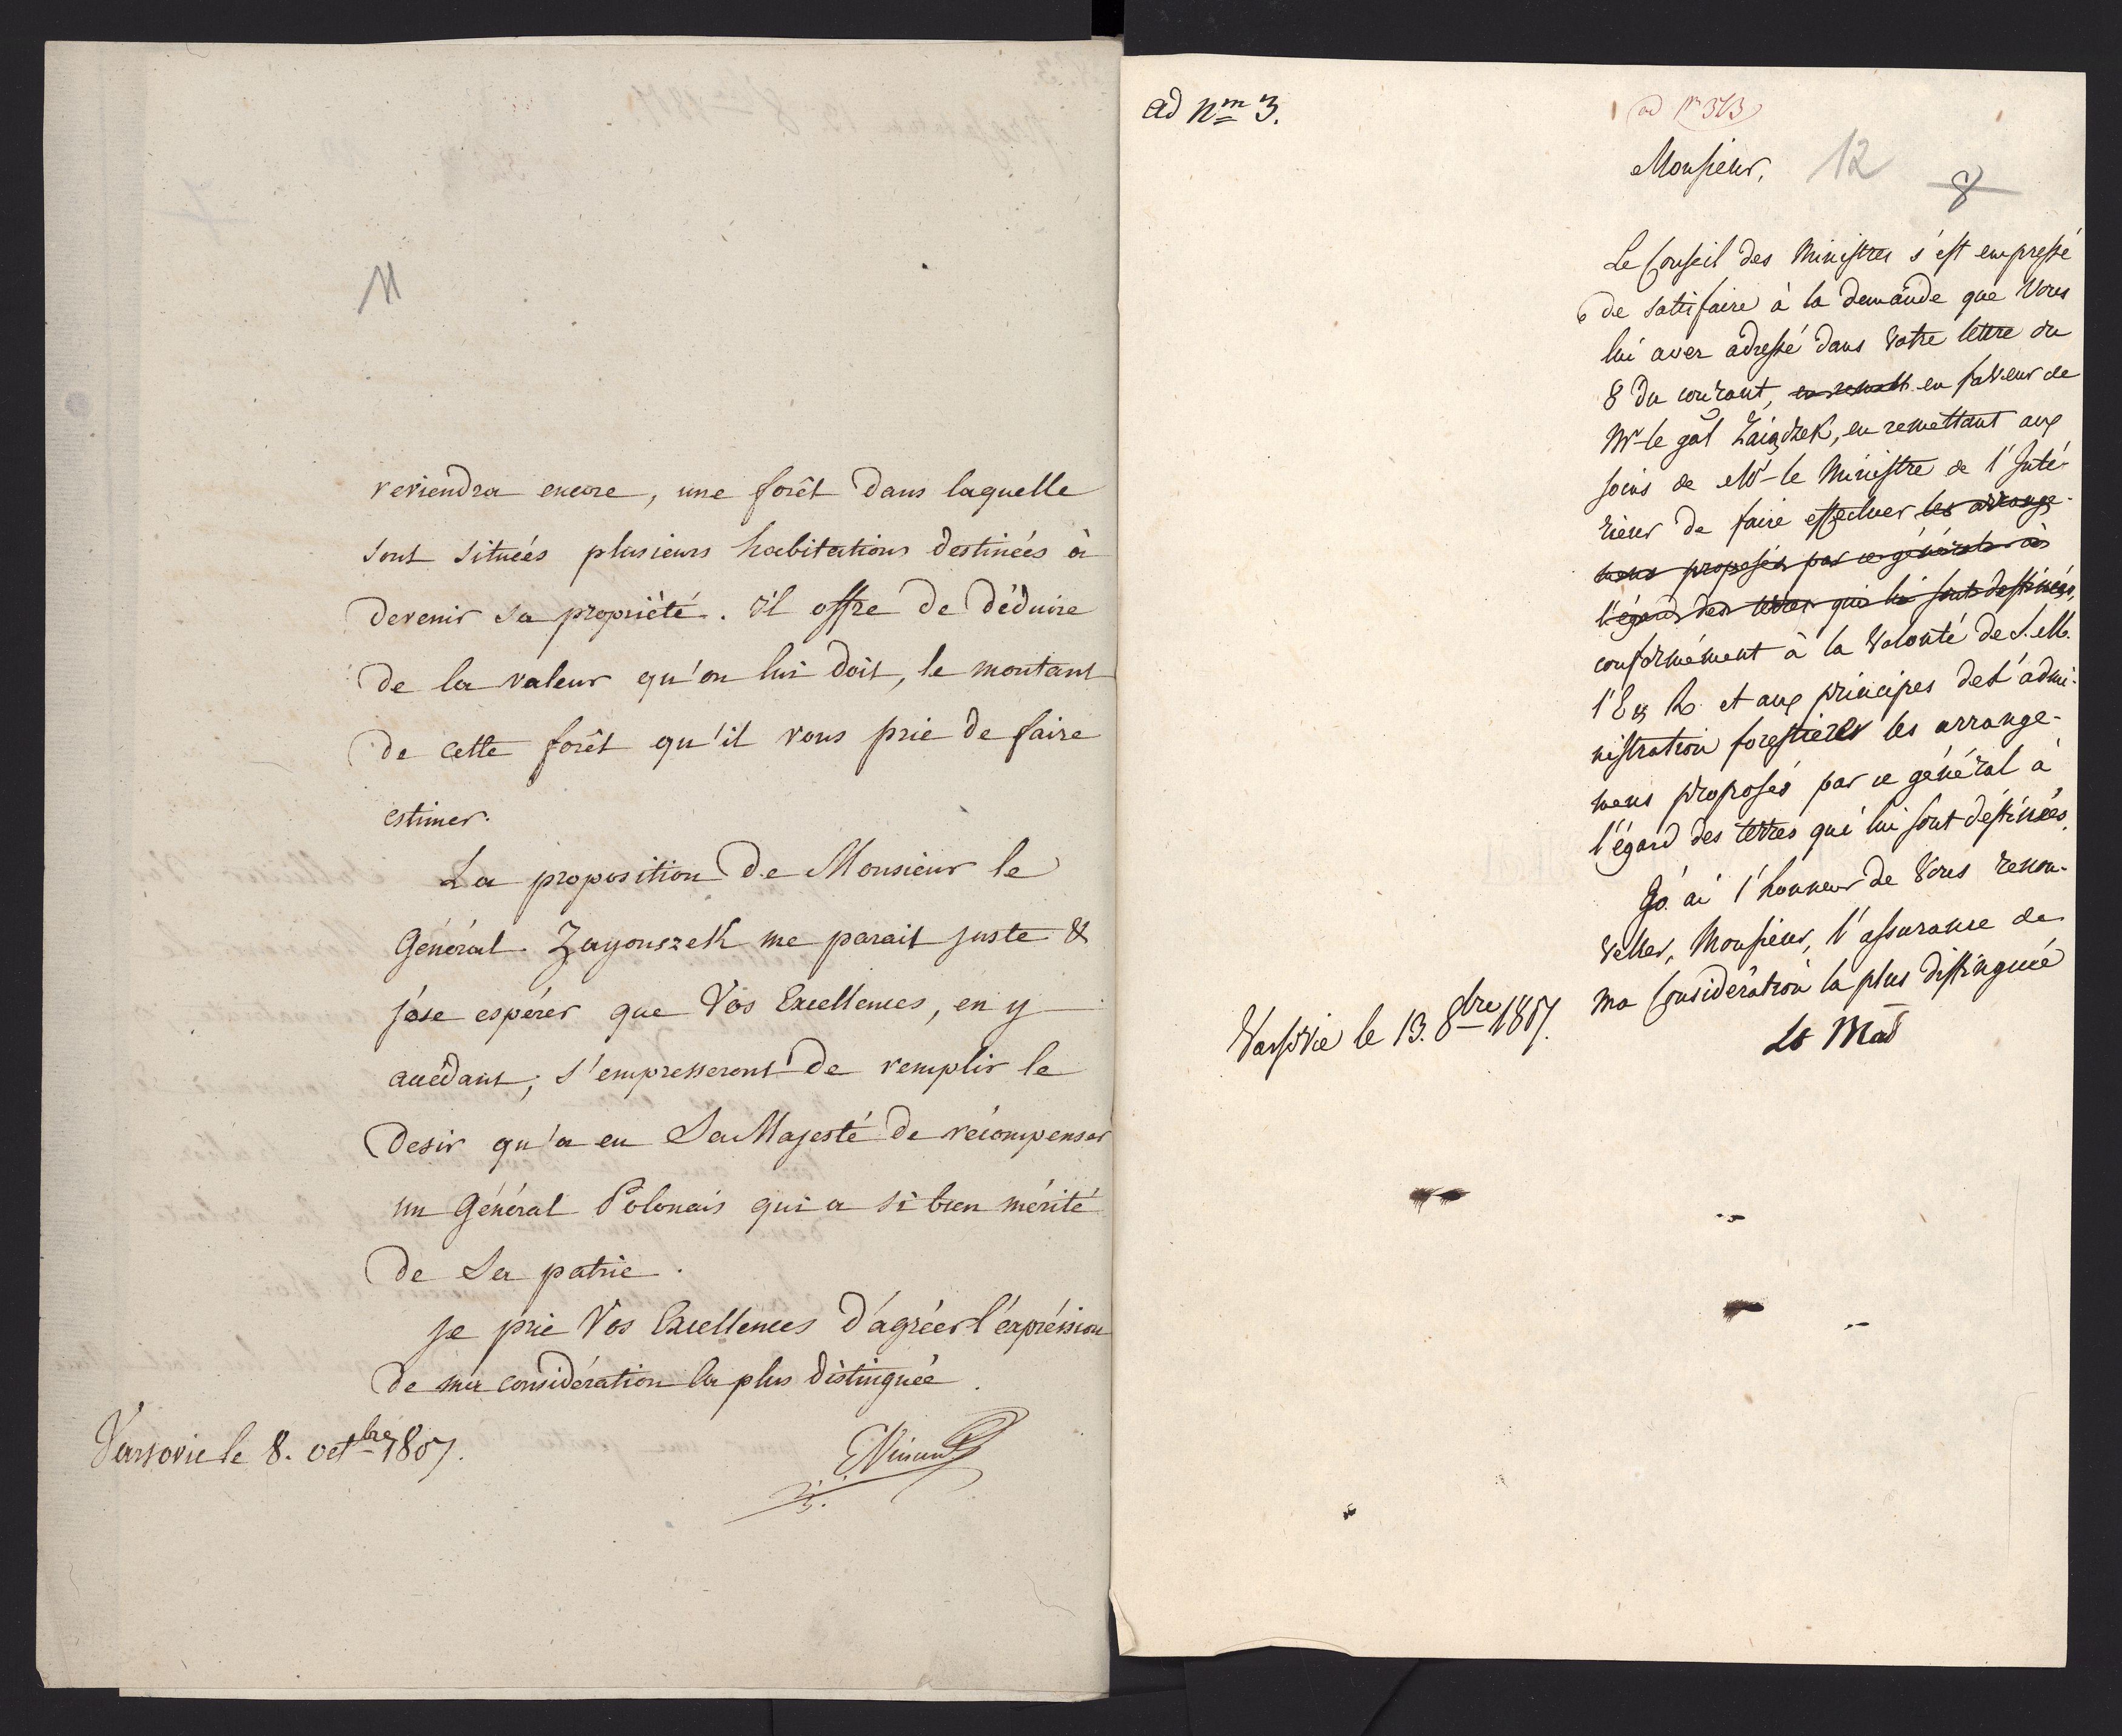 11
reviendra encore, une forêt dans laquelle
sont situées plusieurs habitations destinées à
devenir sa propriété. il offre de déduire
de la valeur qu'on lui doit, le montant
de cette forêt qu'il vous prie de faire
estimer.
La proposition de Monsieur le
Général Zayonszek me parait juste &
j'ose espérer que Vos Excellences, en y
accédant, s'empresseront de remplir le
desir qu'a eu Sa Majesté de récompenser
un Général Polonais qui a si bien mérité
de Sa patrie.
je prie Vos Excellences d'agréer l'expréssion
de ma considération la plus distinguée.
Varsovie le 8. octbre 1807.
EVincent
ad Nm 3.
ad Nr 313
Monsieur,
12
8
Le Conseil des Ministres s'est empressé
de satisfaire à la demande que Vous
lui avez adressé dans Votre lettre du
8 du courant, en remett en faveur de
Mr le gal Zaiączek, en remettant aux
soins de Mr le Ministre de l'Inté-
rieur de faire effectuer les arrange-
mens proposés par ce général à
l'égard des terres qui lui sont destinées,
conformément à la Volonté de S. M.
l'E & R. et aux principes de l'admi-
nistration forestière les arrange-
mens proposés par ce général à
l'égard des terres qui lui sont déstinées.
J'ai l'honneur de Vous renou-
veller, Monsieur, l'assurance de
ma Considération la plus distinguée
Varsovie le 13. 8bre 1807.
Ls Mał